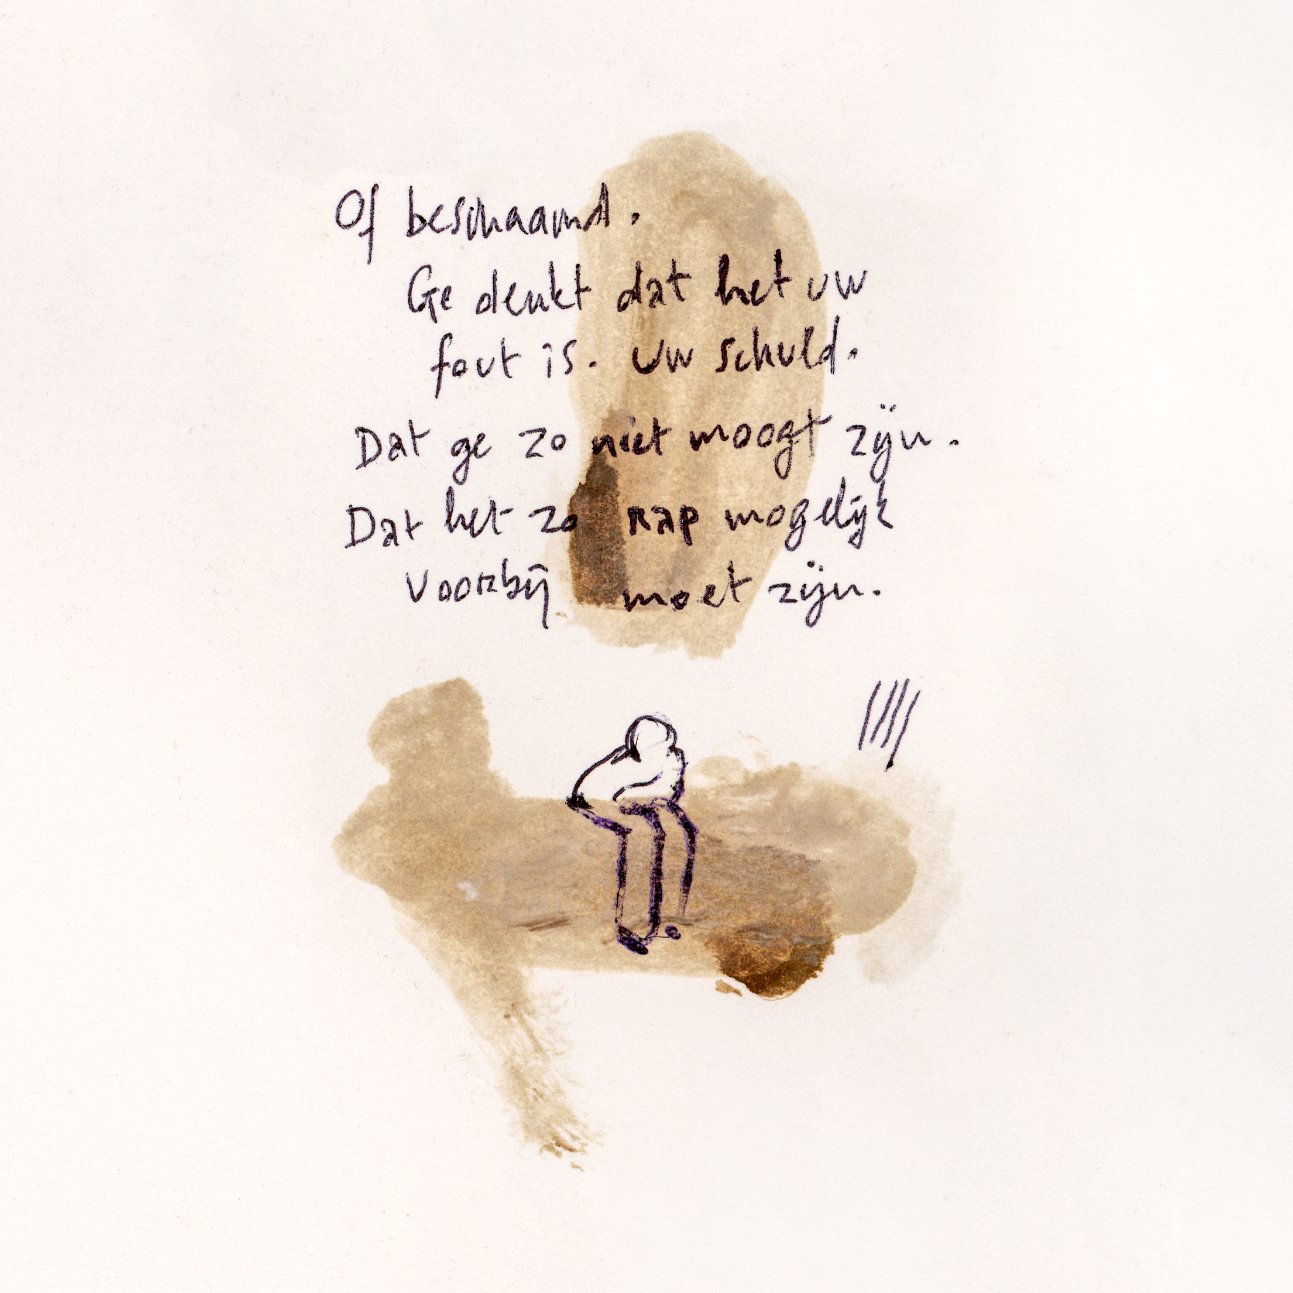 Of beschaamd.
Ge denkt dat het uw
fout is. Uw schuld.
Dat ge zo niet moogt zijn.
Dat het zo rap mogelijk
voorbij moet zijn.